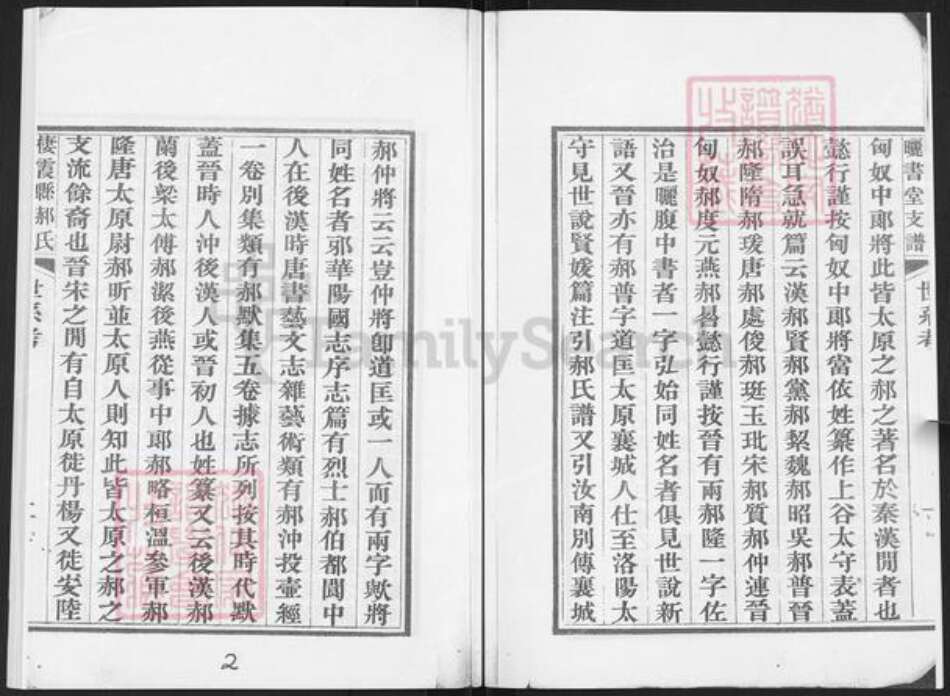 曬書堂支譜
匈奴中郎將此皆太原之郝之著名於秦漢閒者也
懿行謹按匈奴中郎將當依姓纂作上谷太守表蓋
誤耳急就篇云漢郝賢郝黨郝絜魏郝昭吳郝普晉
郝隆隋郝瑗唐郝處俊郝珽玉玭宋郝質郝仲連晉
匈奴郝度元燕郝晷懿行謹按晉有兩郝隆一字佐
治是曬腹中書者一字弘始同姓名者俱見世說新
語又晉亦有郝普字道匡太原襄城人仕至洛陽太
守見世說賢媛篇注引郝氏譜又引汝南別傳襄城
郝仲將云云豈仲將卽道匡或一人而有兩字歟將
同姓名者邪華陽國志序志篇有烈士郝伯都閬中
人在後漢時唐書藝文志雜藝術類有郝沖投壷經
一卷別集類有郝默集五卷據志所列按其時代默
蓋晉時人沖後漢人或晉初人也姓纂又云後漢郝
蘭後梁太傅郝潔後燕從事中郎郝略桓溫參軍郝
隆唐太原尉郝昕並太原人則知此皆太原之郝之
支流餘裔也晉宋之閒有自太原徙丹楊又徙安陸
棲霞縣郝氏
2
FamilySearch